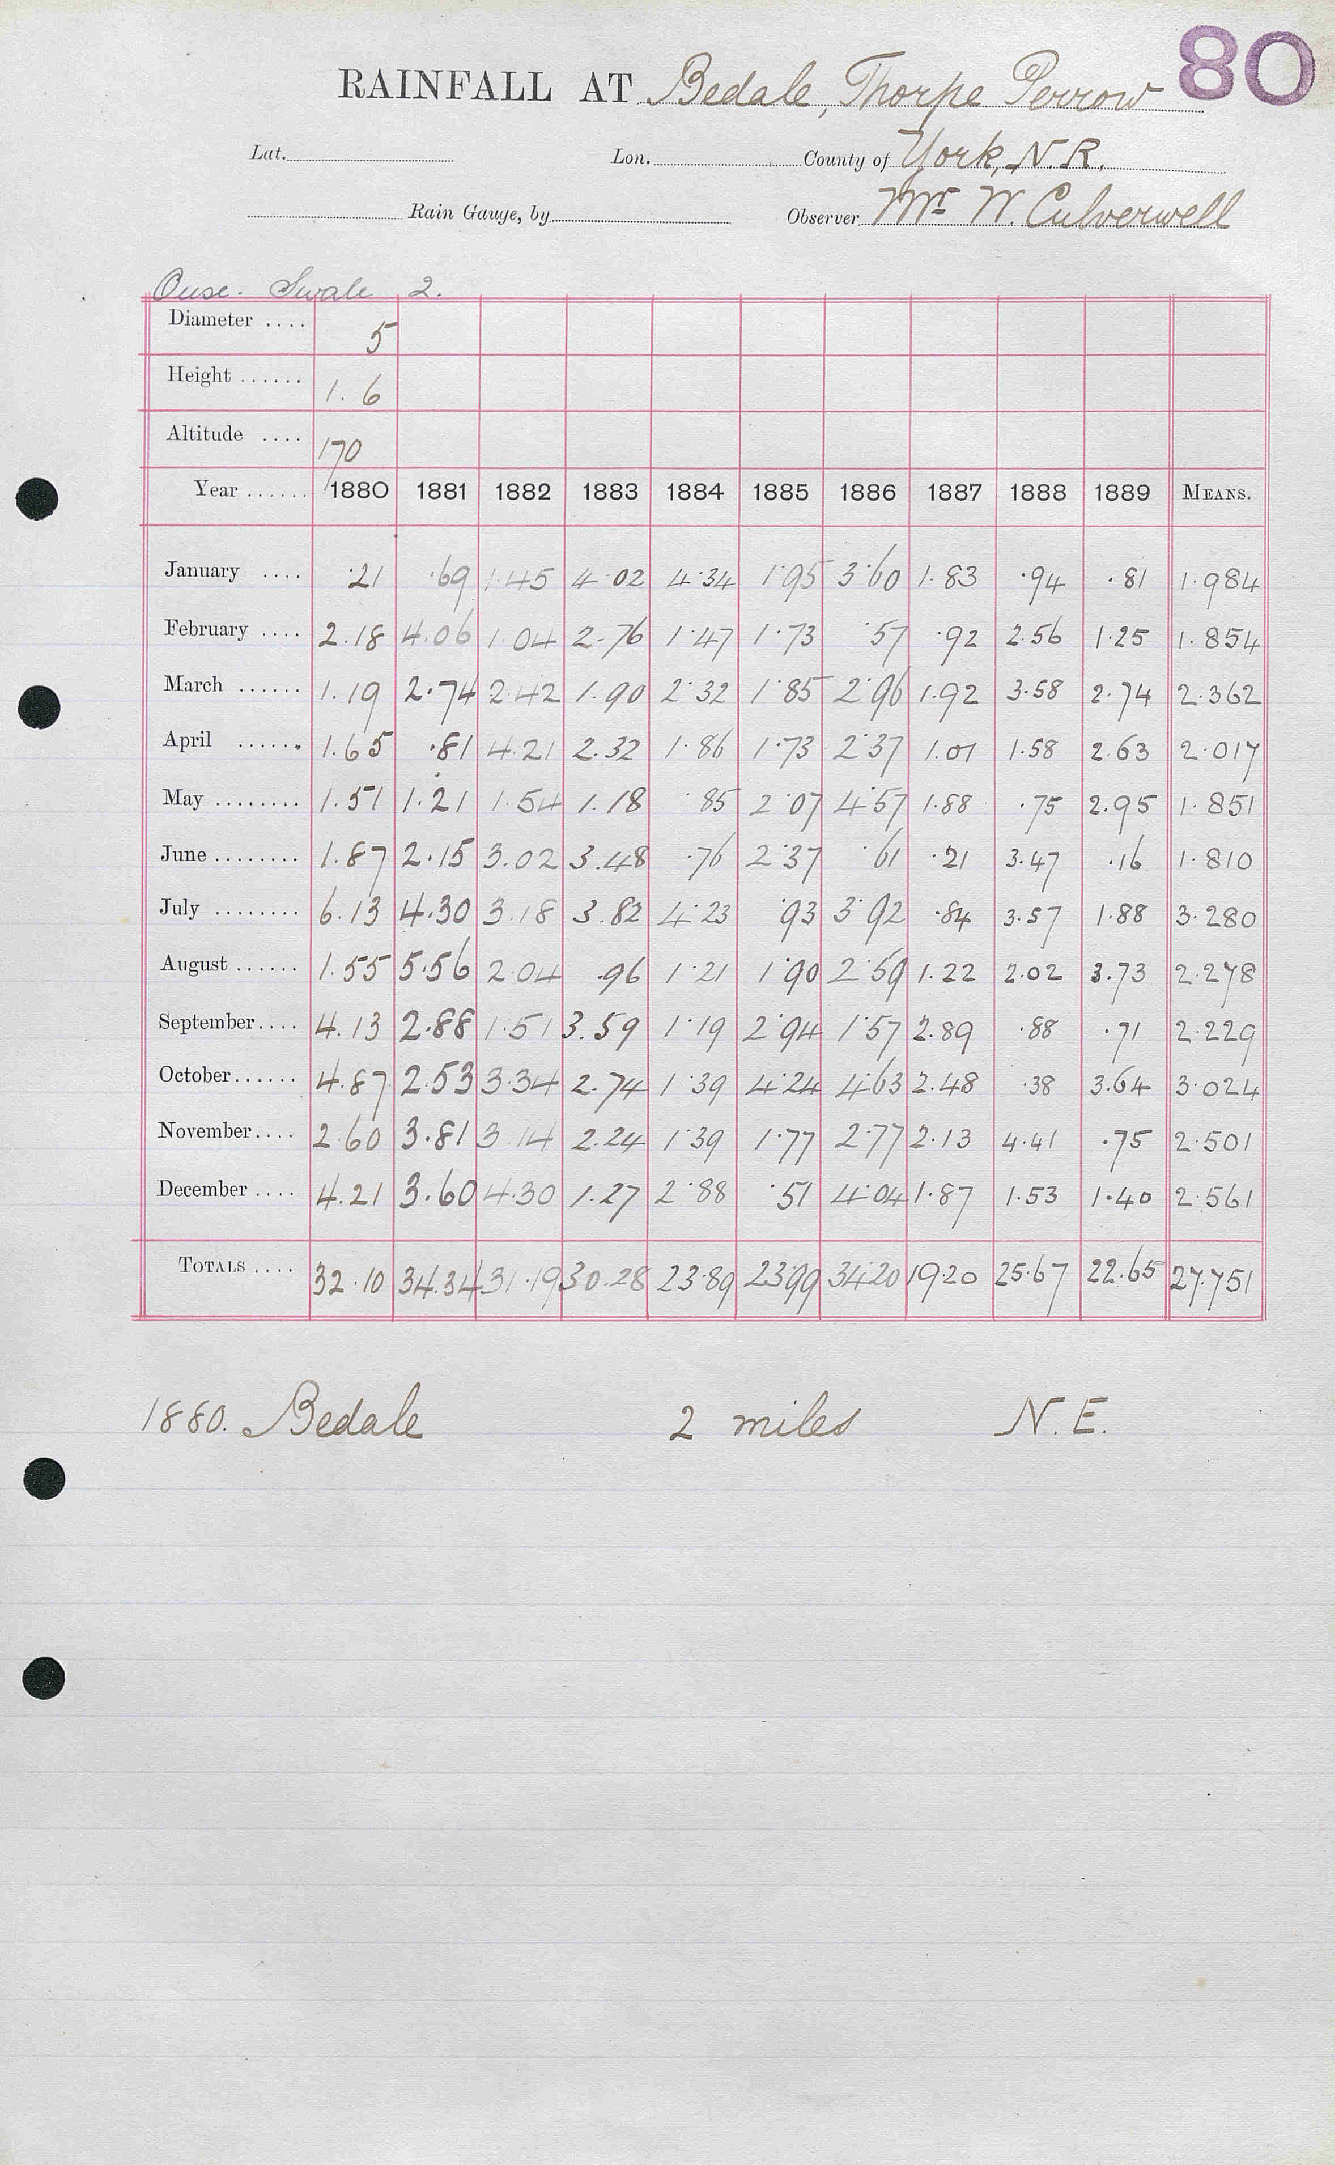 80
RAINFALL AT Bedale, Thorpe Perrow
Lat. Lon. County of York, N.R.
Rain Gauge, by Observer Mr. W. Culverwell
Ouse. Swale 2.
Diameter .... 5
Height ...... 1.6
Altitude .... 170
Year ...... 1880 1881 1882 1883 1884 1885 1886 1887 1888 1889 MEANS.
January .... .21 .69 1.45 4.02 4.34 1.95 3.60 1.83 .94 .81 1.984
February .... 2.18 4.06 1.04 2.76 1.47 1.73 .57 .92 2.56 1.25 1.854
March ...... 1.19 2.74 2.42 1.90 2.32 1.85 2.96 1.92 3.58 2.74 2.362
April ...... 1.65 .81 4.21 2.32 1.86 1.73 2.37 1.01 1.58 2.63 2.017
May ........ 1.51 1.21 1.54 1.18 .85 2.07 4.57 1.88 .75 2.95 1.851
June ........ 1.87 2.15 3.02 3.48 .76 2.37 .61 .21 3.47 .16 1.810
July ........ 6.13 4.30 3.18 3.82 4.23 .93 3.92 .84 3.57 1.88 3.280
August ...... 1.55 5.56 2.04 .96 1.21 1.90 2.59 1.22 2.02 3.73 2.278
September.... 4.13 2.88 1.51 3.59 1.19 2.94 1.57 2.89 .88 .71 2.229
October...... 4.87 2.53 3.34 2.74 1.39 4.24 4.63 2.48 .38 3.64 3.024
November.... 2.60 3.81 3.14 2.24 1.39 1.77 2.77 2.13 4.41 .75 2.501
December .... 4.21 3.60 4.30 1.27 2.88 .51 4.04 1.87 1.53 1.40 2.561
TOTALS .... 32.10 34.34 31.19 30.28 23.89 23.99 34.20 19.20 25.67 22.65 27.751
1880. Bedale 2 miles N.E.